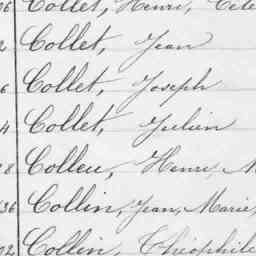 06 Collet, Henri, Cele
2 Collet, Jean
6 Collet, Joseph
4 Collet, Julien
8 Colleu, Henri, M
36 Collin, Jean, Marie,
02 Collin, Théophile